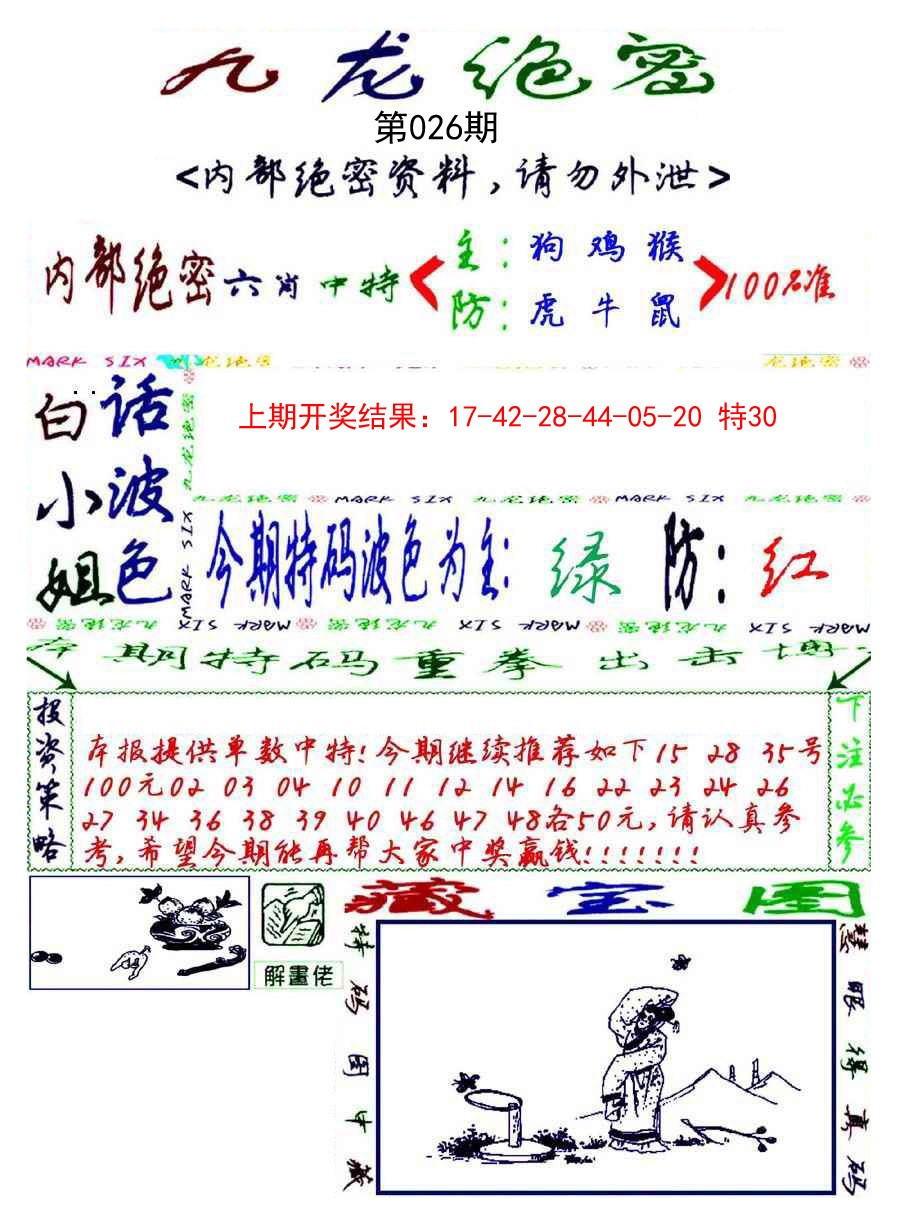 九龙绝密
第026期
<内部绝密资料,请勿外泄>
内部绝密六肖中特
主:狗鸡猴
防:虎牛鼠
100%准
MARK SIX 九龙绝密
九龙绝密
白小姐
话波色
上期开奖结果：17-42-28-44-05-20 特30
九龙绝密
MARK SIX
九龙绝密 MARK SIX 九龙绝密 MARK SIX 九龙绝密
今期特码波色为主:绿 防:红
九龙绝密 MARK SIX 九龙绝密 MARK SIX 九龙绝密 MARK SIX
本期特码重拳出击
投资策略
本报提供单数中特!今期继续推荐如下15 28 35号
100元02 03 04 10 11 12 14 16 22 23 24 26
27 34 36 38 39 40 46 47 48各50元,请认真参
考,希望今期能再帮大家中奖赢钱!!!!!!!
下注必参
解畫佬
藏宝图
特码图中藏
慧眼得真码